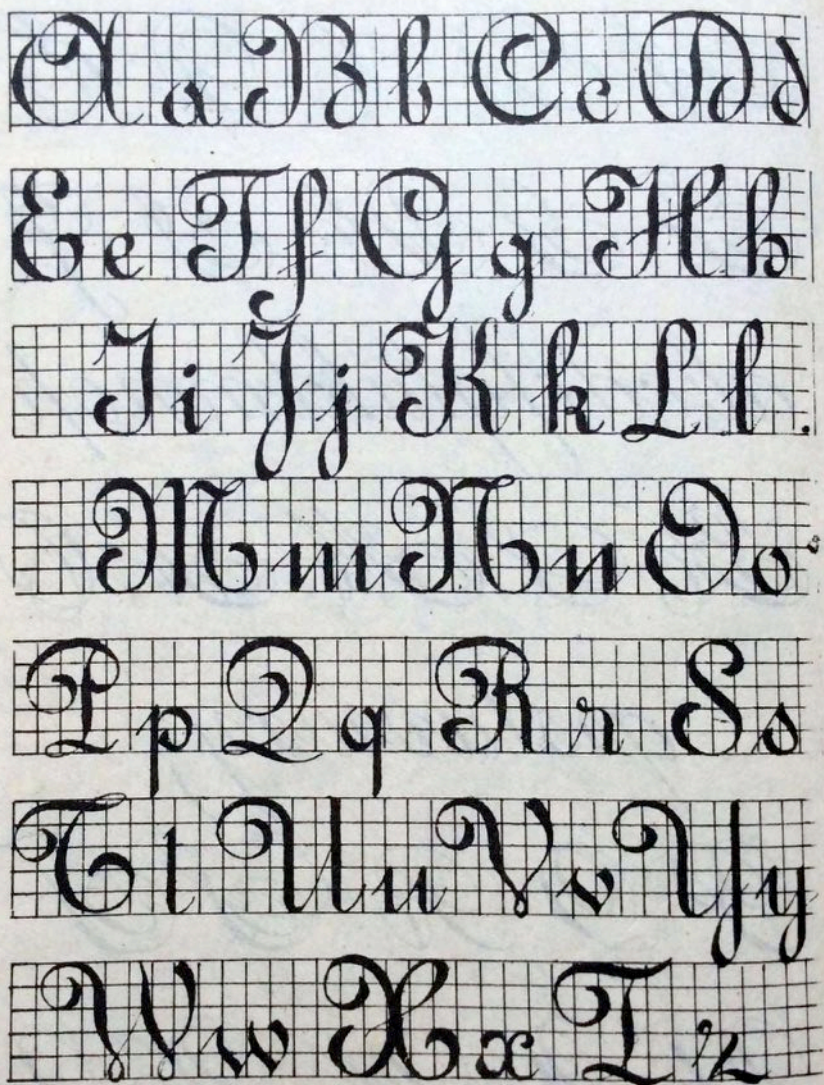 A a B b C c D d
E e F f G g H h
I i J j K k L l .
M m N n O o
P p Q q R r S s
T t U u V v Y y
W w X x Z z